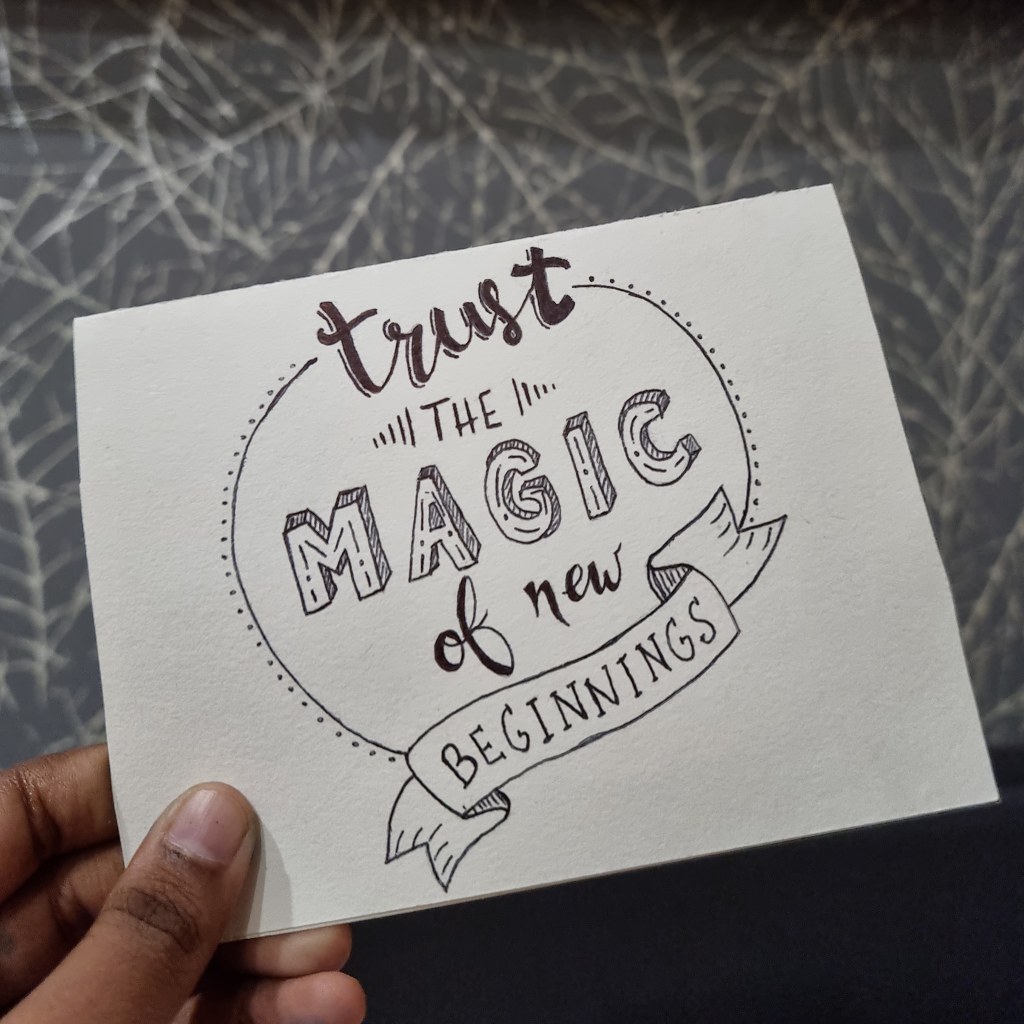 trust
THE
MAGIC
of new
BEGINNINGS